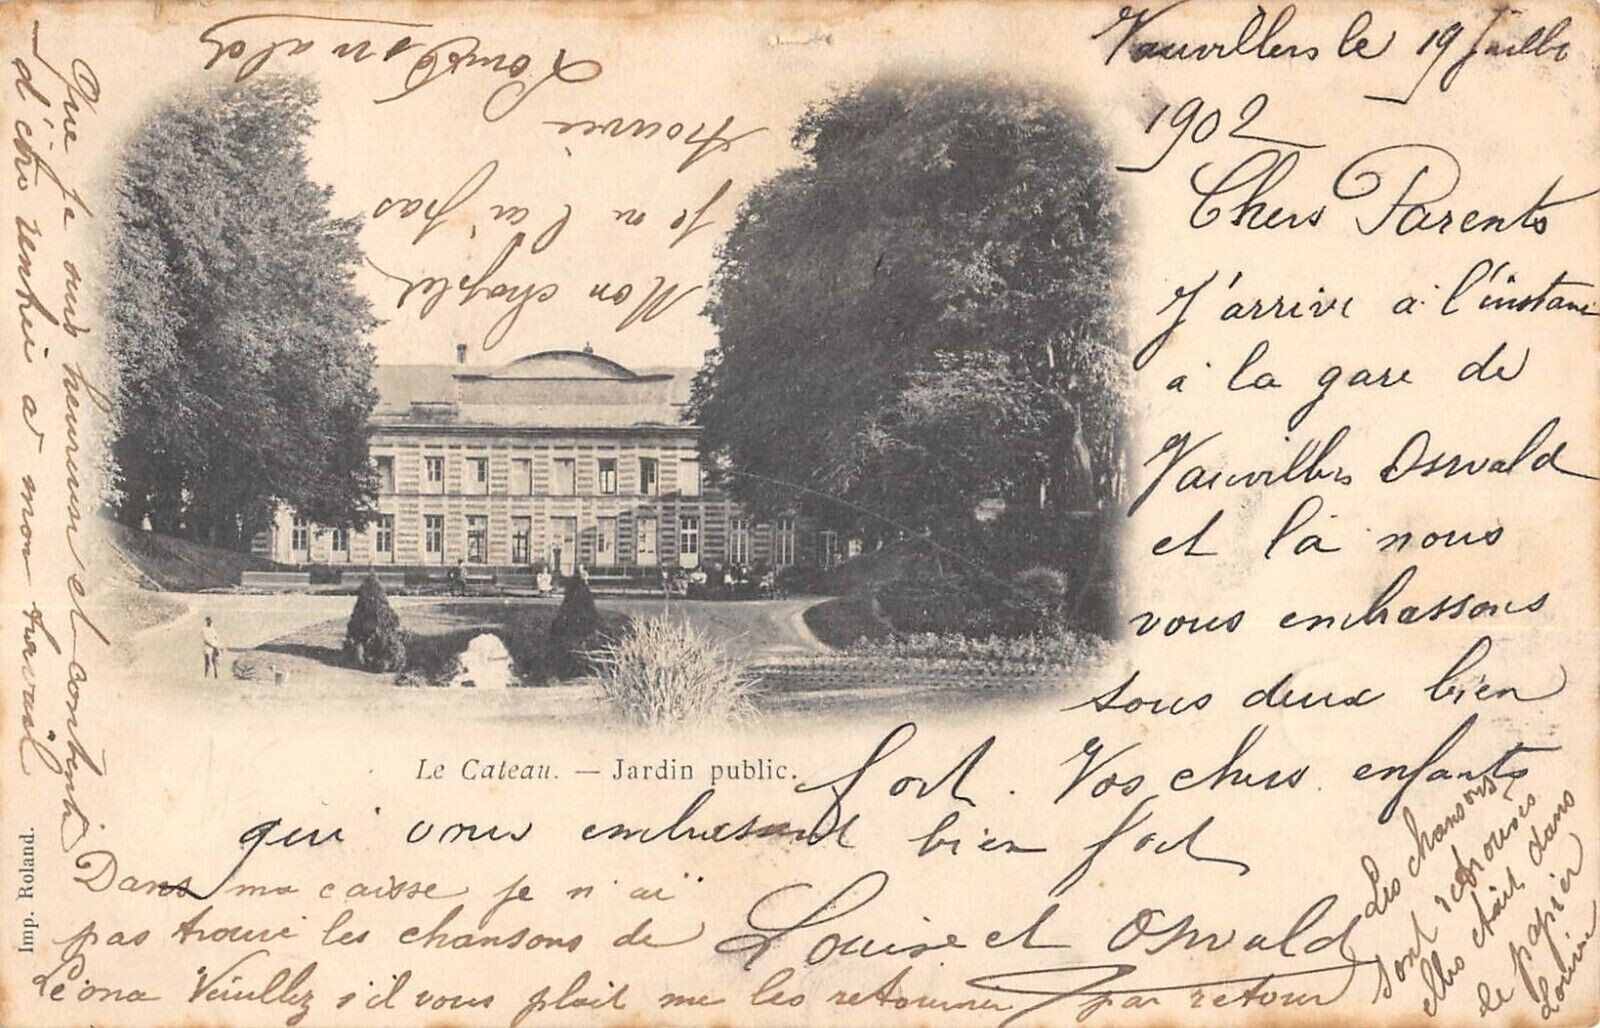 Vauvillers le 19 Juillet
1902
Chers Parents
J'arrive à l'instant
à la gare de
Vauvillers Oswald
et là nous
vous embrassons
tous deux bien
fort. Vos chers enfants
qui vous embrassent bien fort
Louise et Oswald
Dans ma caisse je n'ai
pas trouvé les chansons de
Léona Veuillez s'il vous plait me les retourner par retour
Les chansons
sont retrouvées
elles était dans
le papier
Louise
Mon chaplet
je n l'ai pas
trouvé
Louise Osvald
Que je suis heureuse et contente
d'être rentrée a mon travail
Le Cateau. — Jardin public.
Imp. Roland.